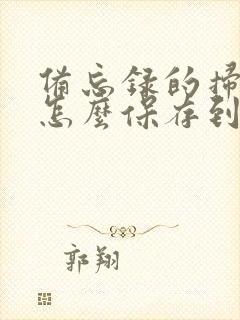 備忘録的掃
怎麼保存到
郭翔